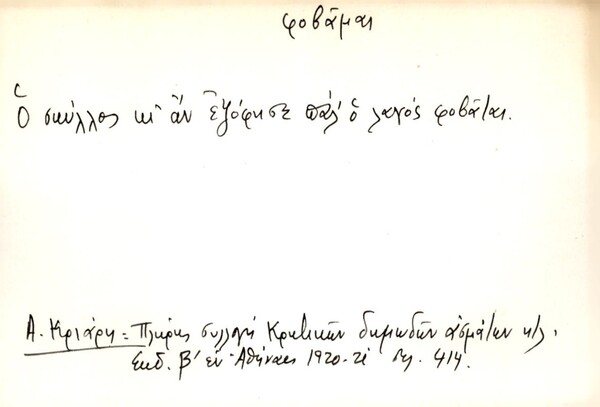 φοβᾶμαι
Ὁ σκύλλος κι ἂν ἐζόφησε πάλ' ὁ λαγός φοβᾶται.
Α. Κριάρη = Πλήρης συλλογή Κρητικῶν δημωδῶν ἀσμάτων κτλ.
Ἐκδ. β' ἐν Ἀθήναις 1920-21 σελ. 414.